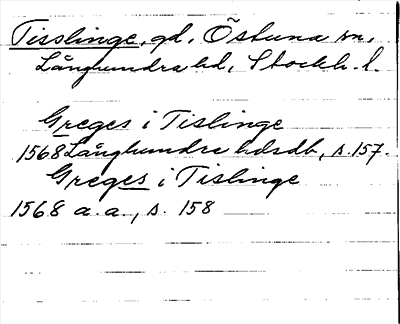 Tisslinge, gd, Östuna sn,
Långhundra hd, Stockh. l.
Greges i Tislinge
1568 Långhundra hdsdb, s. 157.
Greges i Tislinge
1568 a. a., s. 158